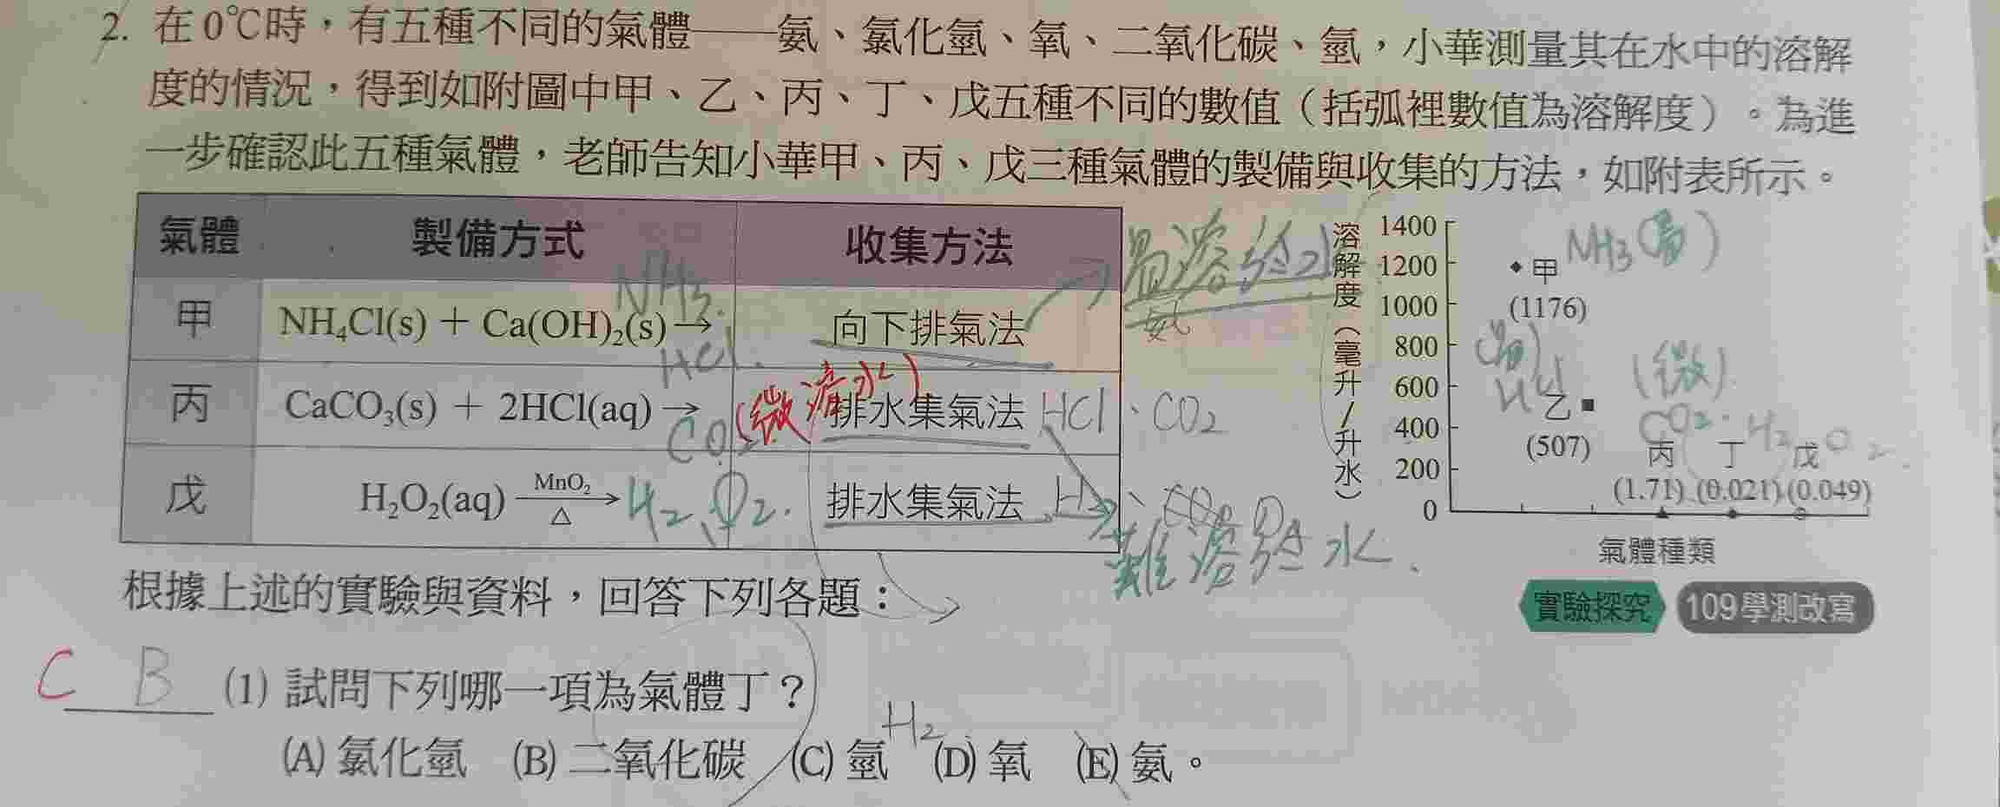 2. 在0℃時，有五種不同的氣體——氨、氯化氫、氧、二氧化碳、氫，小華測量其在水中的溶解
度的情況，得到如附圖中甲、乙、丙、丁、戊五種不同的數值（括弧裡數值為溶解度）。為進
一步確認此五種氣體，老師告知小華甲、丙、戊三種氣體的製備與收集的方法，如附表所示。
氣體 製備方式 收集方法
甲 NH₄Cl(s) + Ca(OH)₂(s) → 向下排氣法
NH₃.
HCl.
易溶於水
氨
丙 CaCO₃(s) + 2HCl(aq) → 排水集氣法
CO₂
(微溶水)
HCl、CO₂
戊 H₂O₂(aq) MnO₂ △ → 排水集氣法
H₂、O₂.
難溶於水.
溶解度（毫升/升水）
1400
1200
1000
800
600
400
200
0
甲 NH₃(易)
(1176)
(易)
乙
(507)
(微)
CO₂ H₂ O₂
丙 丁 戊
(1.71) (0.021) (0.049)
氣體種類
實驗探究 109學測改寫
根據上述的實驗與資料，回答下列各題：
C B (1) 試問下列哪一項為氣體丁？
H₂
(A) 氯化氫 (B) 二氧化碳 (C) 氫 (D) 氧 (E) 氨。